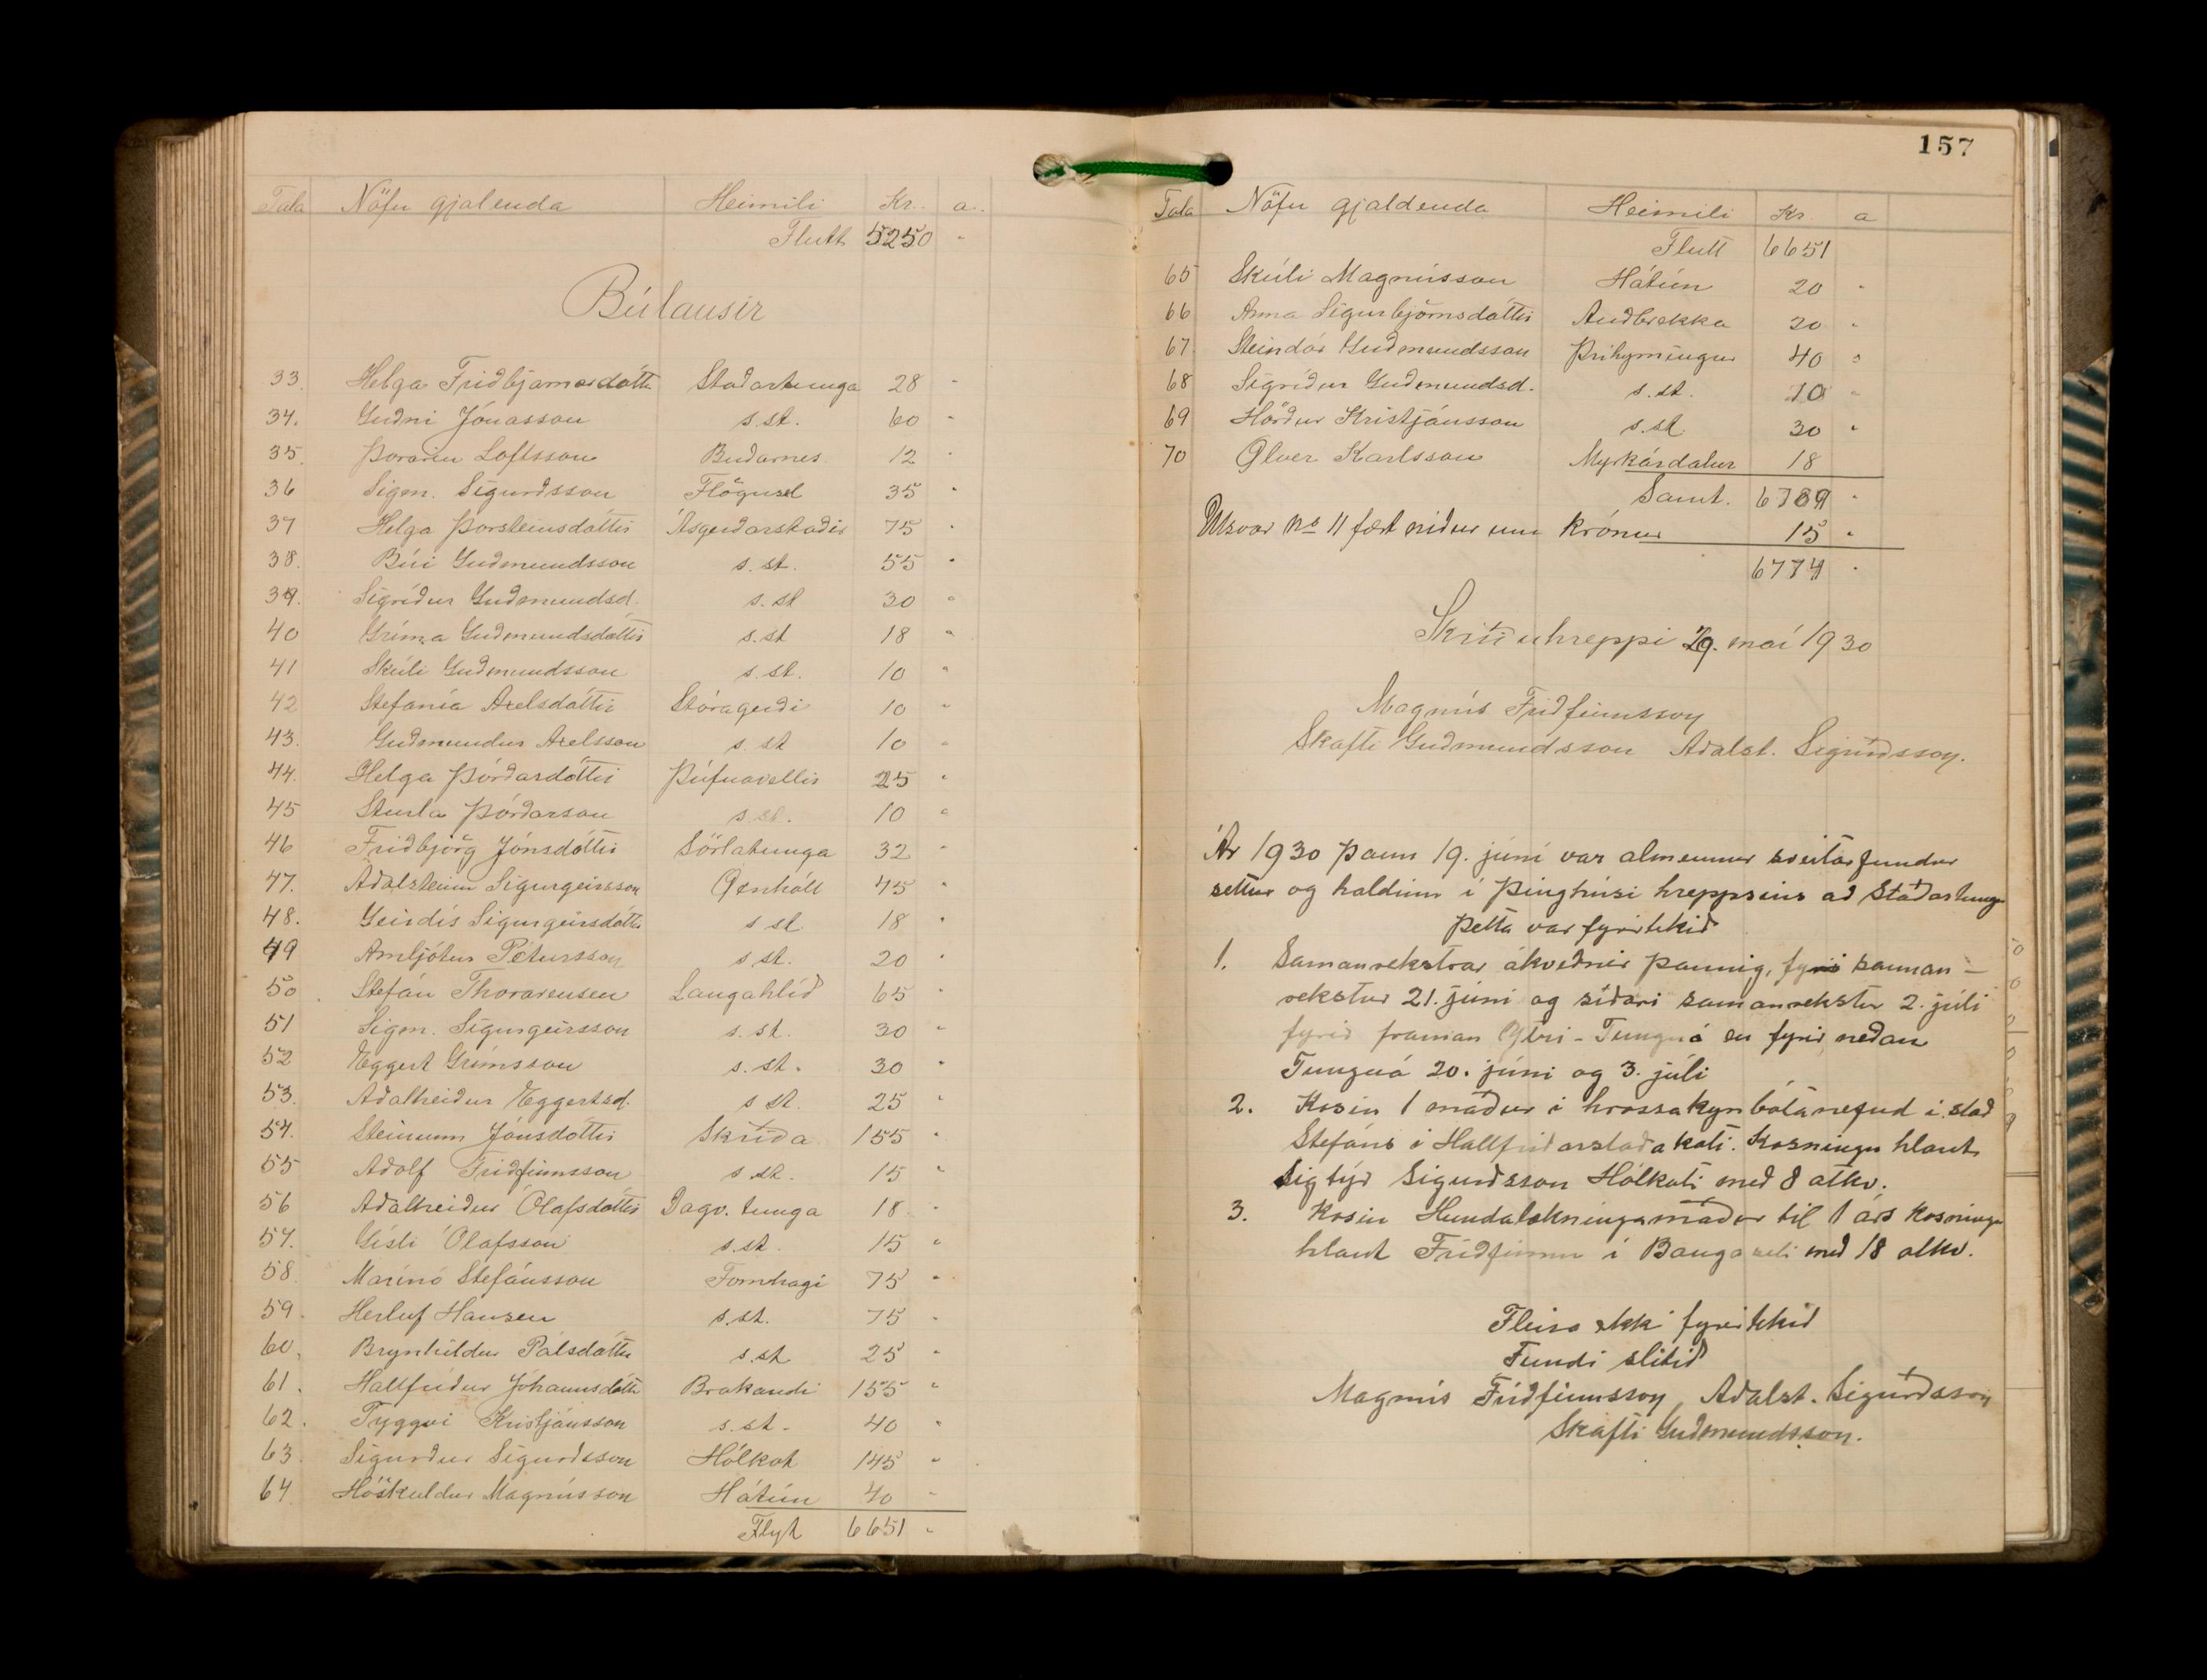 Tala Nöfn gjalenda Heimili Kr. a.
Flutt 5250 "
Búlausir
33. Helga Friðbjarnardóttir Staðartunga 28 "
34. Guðni Jónasson s.st. 60 "
35. Þorarin Loftsson Búðarnes 12 "
36 Sigm. Sigurðsson Flögusel 35 "
37 Helga Þorsteinsdóttir Ásgerðarstaðir 75 "
38. Búi Guðmundsson s.st. 55 "
39. Sigríður Guðmundsd. s.st 30 "
40 Gríma Guðmundsdóttir s.st 18 "
41 Skúli Guðmundsson s.st. 10 "
42 Stefanía Axelsdóttir Stóragerði 10 "
43. Guðmundur Axelsson s.st 10 "
44. Helga Þórðardóttir Þúfnavellir 25 "
45 Sturla Þórðarson s.st. 10 "
46 Friðbjörg Jónsdóttir Sörlatunga 32 "
47. Aðalsteinn Sigurgeirsson Öxnhóll 45 "
48. Geirdís Sigurgeirsdóttir s st 18 "
49 Arnljótur Pétursson s st. 20 "
50 Stefán Thorarensen Langahlíð 65 "
51 Sigm. Sigurgeirsson s.st. 30 "
52 Eggert Grímsson s.st. 30 "
53. Aðalheiður Eggertsd. s st. 25 "
54. Steinunn Jónsdóttir Skriða 155 "
55 Adolf Friðfinnsson s st. 15 "
56 Aðalheiður Ólafsdóttir Dagv.tunga 18 "
57. Gísli Ólafsson s.st. 15 "
58 Marinó Stefánsson Fornhagi 75 "
59. Herluf Hansen s.st. 75 "
60. Brynhildur Pálsdóttir s.st 25 "
61. Hallfríður Jóhannsdóttir Brakandi 155 "
62. Tryggvi Kristjánsson s.st. 40 "
63. Sigurður Sigurðsson Hólkot 145 "
64 Höskuldur Magnússon Hátún 40 "
Flyt 6651 "
157
Tala Nöfn gjaldenda Heimili Kr. a
Flutt 6651
65 Skúli Magnússon Hátún 20 "
66 Anna Sigurbjörnsdóttir Auðbrekka 20 "
67 Steindór Guðmundsson Þríhyrningur 40 "
68 Sigríður Guðmundsd. s.st. 10 "
69 Hörður Kristjánsson s.st 30 "
70 Ölver Karlsson Myrkárdalur 18
Samt. 6789 "
Útsvar No 11 fært niður um krónur 15 "
6774 "
Skriðuhreppi 29. maí 1930
Magnús Friðfinnsson
Skafti Guðmundsson Aðalst. Sigurðsson.
Ár 1930 þann 19. júní var almennur sveitarfundur
settur og haldinn í þinghúsi hreppsins að Staðartungu
Þetta var fyrirtekið
1. Samanrekstrar ákveðnir þannig, fyrri saman-
rekstur 21. júni og síðari samanrekstur 2. júli
fyrir framan Ytri-Tunguá en fyrir neðan
Tunguá 20. júni og 3. júli
2. Kosin 1 maður í hrossakynbótanefnd í stað
Stefáns í Hallfríðarstaðakoti. Kosningu hlaut
Sigtýr Sigurðsson Hólkoti með 8 atkv.
3. Kosin Hundalækningamaður til 1 árs kosningu
hlaut Friðfinnur í Baugaseli með 18 atkv.
Fleira ekki fyrirtekið
Fundi slitið
Magnús Friðfinnsson Aðalst. Sigurðsson
Skafti Guðmundsson.